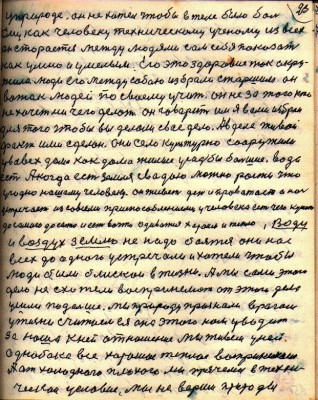 26
у природе. он не хотел чтобы в теле было бол
ему как человеку техническому ученому из всех
он старается между людями сам себя показать
как умно и умелым. его это здоровие так окру-
жило люди его между собою избрали старшим. он
вожак людей по своему учит. он не за того как
не хочет ничего делать он говорит им я вами избран
для того чтобы вы делали свое дело. А в деле живой
факт или сделан. Они село культурно сооружали
у всех дело как дома жилые усадьбы большие. вода
есть. А когда есть земля свободно можно расти это
угодно нашему человеку. он живет
встречает из своими приспособлениями, у человека есть чем кушать
до самого досыта и есть во что одеватся хорошо и тепло, Воду
и воздух землю не надо боятся они нас
всех до одного встречали и хотели чтобы
люди были близкои в жизне. А мы сами этого
дело не схотели воспринимать от этого дела
ушли подальше. мы природу признали врагом
у жизни считаем ея она этого нам уводит
за наша к ней отношение мы живем у ней
однобоко все хорошее теплое воспринимаем
А от холодного плохого мы прячемся в техни-
ческой условие, мы не верим природы